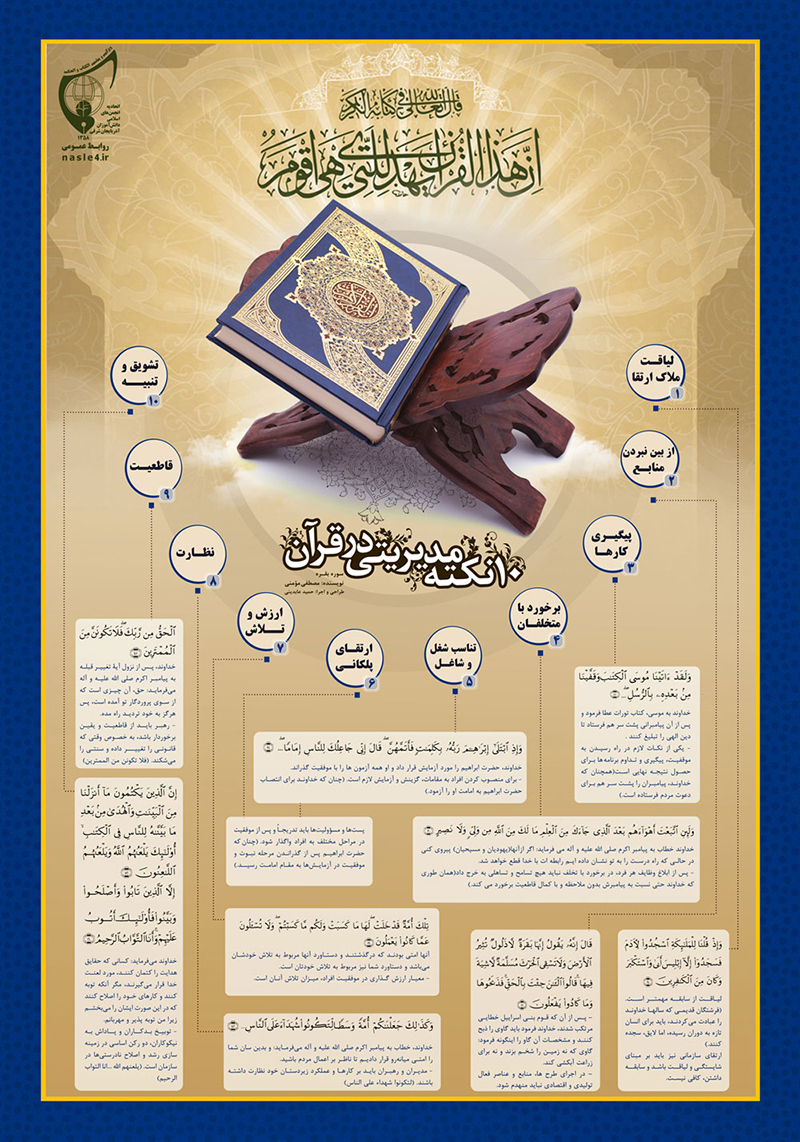 قال الله تعالی فی کتابه الکریم
ان هذا القرآن یهدی للتی هی اقوم
اتحادیه
انجمن‌های
اسلامی
دانش‌آموزان
آذربایجان شرقی
۱۳۵۸
روابط عمومی
nasle4.ir
۱۰ نکته مدیریتی در قرآن
سوره بقره
نویسنده: مصطفی مؤمنی
طراحی و اجرا: حمید عابدینی
لیاقت
ملاک ارتقا
۱
از بین نبردن
منابع
۲
پیگیری
کارها
۳
برخورد با
متخلفان
۴
تناسب شغل
و شاغل
۵
ارتقای
پلکانی
۶
ارزش و
تلاش
۷
نظارت
۸
قاطعیت
۹
تشویق و
تنبیه
۱۰
وَلَقَدْ ءَاتَيْنَا مُوسَى ٱلْكِتَـٰبَ وَقَفَّيْنَا
مِنْ بَعْدِهِ، بِٱلرُّسُلِ ...
خداوند به موسی، کتاب تورات عطا فرمود و
پس از آن پیامبرانی پشت سر هم فرستاد تا
دین الهی را تبلیغ کنند .
- یکی از نکات لازم در راه رسیدن به
موفقیت، پیگیری و تداوم برنامه‌ها برای
حصول نتیجه نهایی است(همچنان که
خداوند، پیامبران را پشت سر هم برای
دعوت مردم فرستاده است.)
ٱلْحَقُّ مِن رَّبِّكَ فَلَا تَكُونَنَّ مِنَ
ٱلْمُمْتَرِينَ
خداوند، پس از نزول آیهٔ تغییر قبله
به پیامبر اکرم صلی الله علیه و آله
می‌فرماید: حق، آن چیزی است که
از سوی پروردگار تو آمده است، پس
هرگز به خود تردید راه مده.
- رهبر باید از قاطعیت و یقین
برخوردار باشد، به خصوص وقتی که
قانونی را تغییر داده و سنتی را
می‌شکند. (فلا تکونن من الممترین)
وَإِذِ ٱبْتَلَىٰٓ إِبْرَٰهِـۧمَ رَبُّهُۥ بِكَلِمَـٰتٍ فَأَتَمَّهُنَّ قَالَ إِنِّى جَاعِلُكَ لِلنَّاسِ إِمَامًا ...
خداوند، حضرت ابراهیم را مورد آزمایش قرار داد و او همه آزمون ها را با موفقیت گذراند.
- برای منصوب کردن افراد به مقامات، گزینش و آزمایش لازم است. (چنان که خداوند برای انتصاب
حضرت ابراهیم به امامت او را آزمود.)
إِنَّ ٱلَّذِينَ يَكْتُمُونَ مَآ أَنزَلْنَا
مِنَ ٱلْبَيِّنَـٰتِ وَٱلْهُدَىٰ مِنۢ بَعْدِ
مَا بَيَّنَّـٰهُ لِلنَّاسِ فِى ٱلْكِتَـٰبِ
أُو۟لَـٰٓئِكَ يَلْعَنُهُمُ ٱللَّهُ وَيَلْعَنُهُمُ
ٱللَّـٰعِنُونَ
إِلَّا ٱلَّذِينَ تَابُوا۟ وَأَصْلَحُوا۟
وَبَيَّنُوا۟ فَأُو۟لَـٰٓئِكَ أَتُوبُ
عَلَيْهِمْ وَأَنَا ٱلتَّوَّابُ ٱلرَّحِيمُ
خداوند می‌فرماید: کسانی که حقایق
هدایت را کتمان کنند، مورد لعنت
خدا قرار می‌گیرند، مگر آنکه توبه
کنند و کارهای خود را اصلاح کنند
که در این صورت ایشان را می‌بخشم
زیرا من توبه پذیر و مهربانم.
- توبیخ بدکاران و پاداش به
نیکوکاران، دو رکن اساسی در زمینه
سازی رشد و اصلاح نادرستی‌ها در
سازمان است. (یلعنهم الله ...انا التواب
الرحیم)
پست‌ها و مسؤولیت‌ها باید تدریجاً و پس از موفقیت
در مراحل مختلف به افراد واگذار شود. (چنان که
حضرت ابراهیم پس از گذراندن مرحله نبوت و
موفقیت در آزمایش‌ها به مقام امامت رسید.)
وَلَئِنِ ٱتَّبَعْتَ أَهْوَآءَهُم بَعْدَ ٱلَّذِى جَآءَكَ مِنَ ٱلْعِلْمِ مَا لَكَ مِنَ ٱللَّهِ مِن وَلِىٍّ وَلَا نَصِيرٍ
خداوند خطاب به پیامبر اکرم صلی الله علیه و آله می فرماید: اگر ازآنها(یهودیان و مسیحیان) پیروی کنی
در حالی که راه درست را به تو نشان داده ایم رابطه ات با خدا قطع خواهد شد.
- پس از ابلاغ وظایف هر فرد، در برخورد با تخلف نباید هیچ تسامح و تساهلی به خرج داد(همان طوری
که خداوند حتی نسبت به پیامبرش بدون ملاحظه و با کمال قاطعیت برخورد می کند.)
تِلْكَ أُمَّةٌ قَدْ خَلَتْ لَهَا مَا كَسَبَتْ وَلَكُم مَّا كَسَبْتُمْ وَلَا تُسْـَٔلُونَ
عَمَّا كَانُوا۟ يَعْمَلُونَ
آنها امتی بودند که درگذشتند و دستاورد آنها مربوط به تلاش خودشان
می‌باشد و دستاورد شما نیز مربوط به تلاش خودتان است.
- معیار ارزش گذاری در موفقیت افراد، میزان تلاش آنان است.
وَكَذَٰلِكَ جَعَلْنَـٰكُمْ أُمَّةً وَسَطًا لِّتَكُونُوا۟ شُهَدَآءَ عَلَى ٱلنَّاسِ ...
خداوند، خطاب به پیامبر اکرم صلی الله علیه و آله می‌فرماید: و بدین سان شما
را امتی میانه‌رو قرار دادیم تا ناظر بر اعمال مردم باشید.
- مدیران و رهبران باید بر کارها و عملکرد زیردستان خود نظارت داشته
باشند. (لتکونوا شهداء علی الناس)
قَالَ إِنَّهُۥ يَقُولُ إِنَّهَا بَقَرَةٌ لَّا ذَلُولٌ تُثِيرُ
ٱلْأَرْضَ وَلَا تَسْقِى ٱلْحَرْثَ مُسَلَّمَةٌ لَّا شِيَةَ
فِيهَا قَالُوا۟ ٱلْـَٔـٰنَ جِئْتَ بِٱلْحَقِّ فَذَبَحُوهَا
وَمَا كَادُوا۟ يَفْعَلُونَ
- پس از آن که قوم بنی اسراییل خطایی
مرتکب شدند، خداوند فرمود باید گاوی را ذبح
کنند و مشخصات آن گاو را اینگونه فرمود:
گاوی که نه زمین را شخم بزند و نه برای
زراعت آبکشی کند.
- در اجرای طرح ها، منابع و عناصر فعال
تولیدی و اقتصادی نباید منهدم شود.
وَإِذْ قُلْنَا لِلْمَلَـٰٓئِكَةِ ٱسْجُدُوا۟ لِـَٔادَمَ
فَسَجَدُوٓا۟ إِلَّآ إِبْلِيسَ أَبَىٰ وَٱسْتَكْبَرَ
وَكَانَ مِنَ ٱلْكَـٰفِرِينَ
لیاقت از سابقه مهمتر است.
(فرشتگان قدیمی که سالها خداوند
را عبادت می‌کردند، باید برای انسان
تازه به دوران رسیده، اما لایق، سجده
کنند.)
ارتقای سازمانی نیز باید بر مبنای
شایستگی و لیاقت باشد و سابقه
داشتن، کافی نیست.